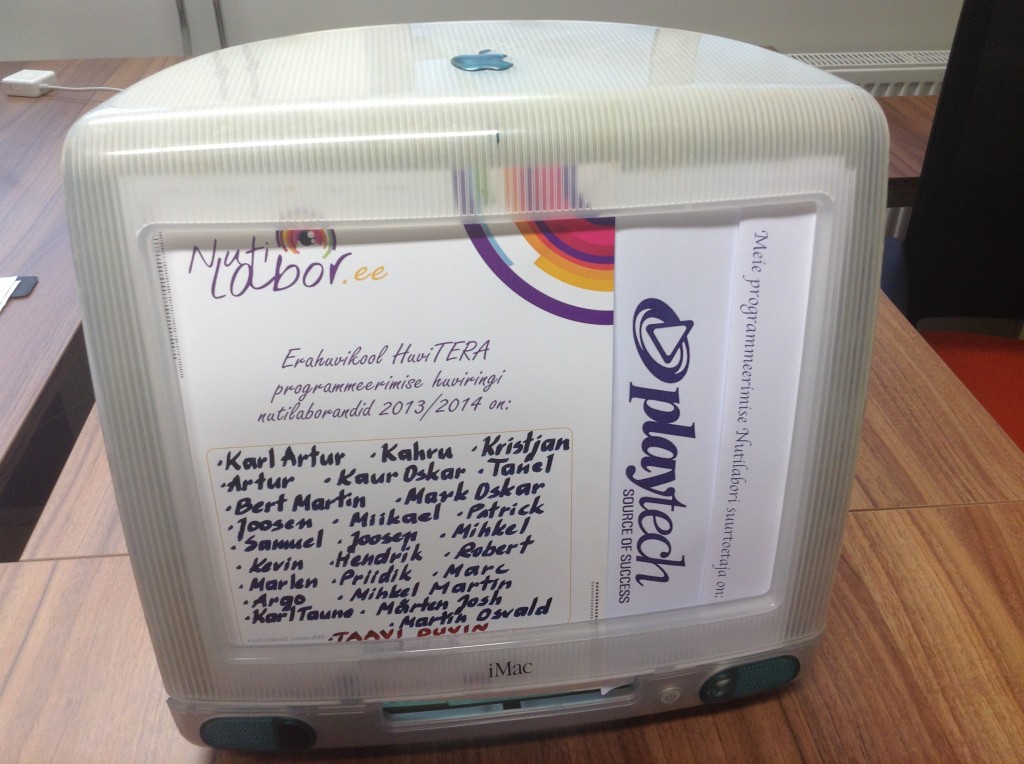 Nuti
Labor.ee
Erahuvikool HuviTERA
programmeerimise huviringi
nutilaborandid 2013/2014 on:
·Karl Artur ·Kahru ·Kristjan
·Artur ·Kaur Oskar ·Tanel
·Bert Martin ·Mark Oskar
·Joosen ·Miikael ·Patrick
·Samuel ·Joosep ·Mihkel
·Kevin ·Hendrik ·Robert
·Marlen ·Priidik ·Marc
·Argo ·Mihkel Martin
·Karl Tauno ·Mårten Josh
·Martin Osvald
·TAAVI DUVIN
Meie programmeerimise Nutilabori suurtoetaja on:
playtech
SOURCE OF SUCCESS
iMac